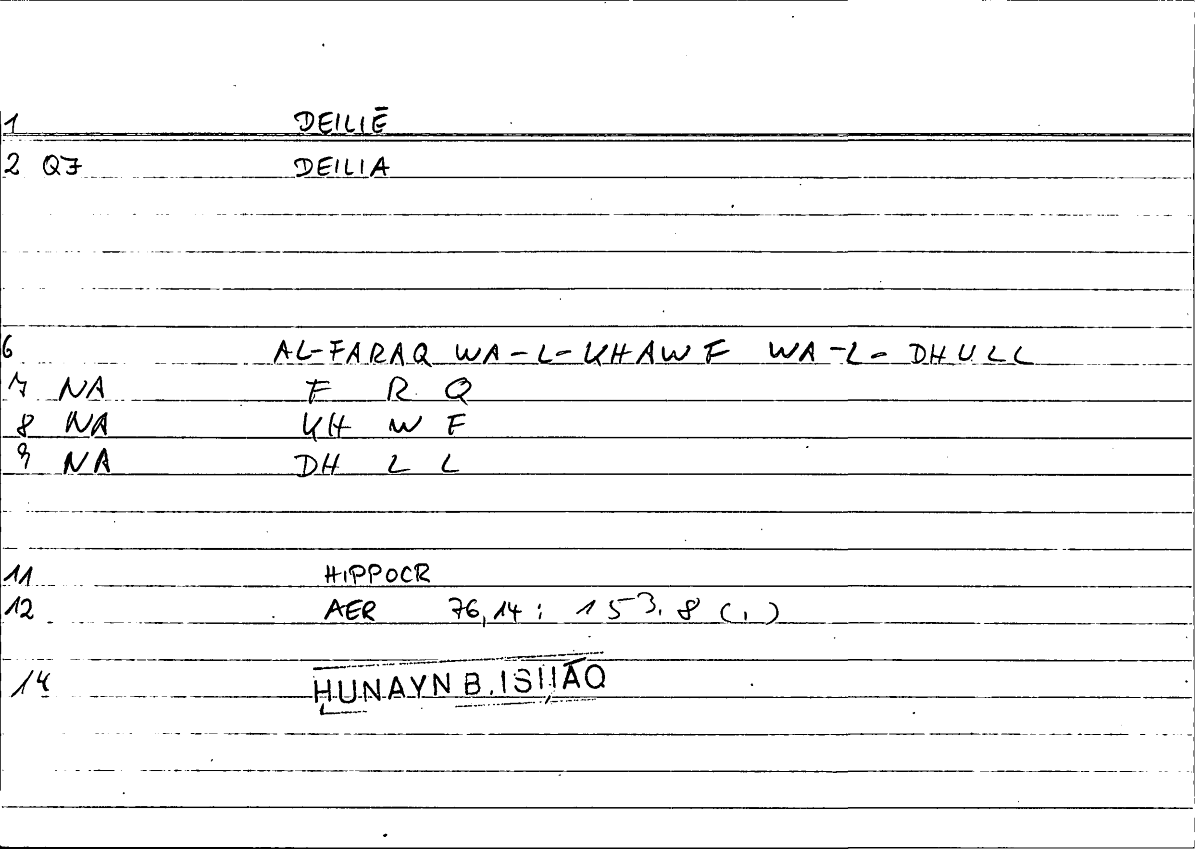 1 DEILIĒ
2 Q7 DEILIA
6 AL-FARAQ WA-L-KHAWF WA-L-DHULL
7 NA F R Q
8 NA KH W F
9 NA DH L L
11 HIPPOCR
12 AER 76,14 : 153.8 (,)
14 ḤUNAYN B. ISḤĀQ